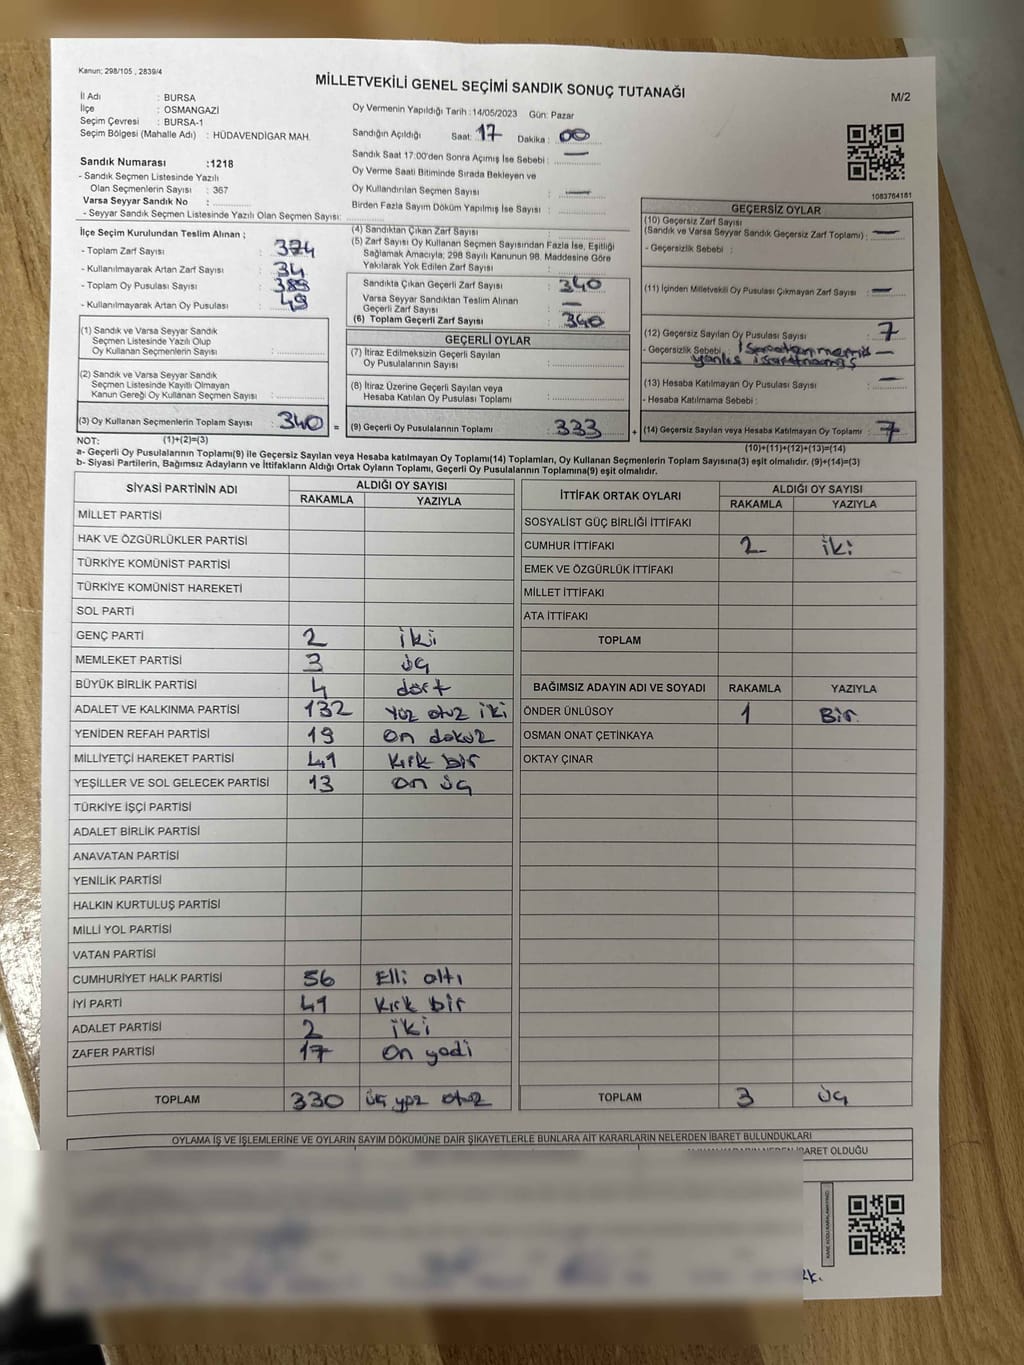 Kanun; 298/105 , 2839/4
MİLLETVEKİLİ GENEL SEÇİMİ SANDIK SONUÇ TUTANAĞI
M/2
İl Adı : BURSA
İlçe : OSMANGAZİ
Seçim Çevresi : BURSA-1
Seçim Bölgesi (Mahalle Adı) : HÜDAVENDİGAR MAH.
Oy Vermenin Yapıldığı Tarih : 14/05/2023 Gün: Pazar
Sandığın Açıldığı Saat: 17 Dakika : 00
Sandık Saat 17:00'den Sonra Açımış İse Sebebi : —
Oy Verme Saati Bitiminde Sırada Bekleyen ve
Oy Kullandırılan Seçmen Sayısı : —
Birden Fazla Sayım Döküm Yapılmış İse Sayısı :
Sandık Numarası :1218
- Sandık Seçmen Listesinde Yazılı
Olan Seçmenlerin Sayısı : 367
Varsa Seyyar Sandık No :
- Seyyar Sandık Seçmen Listesinde Yazılı Olan Seçmen Sayısı:
1083764181
İlçe Seçim Kurulundan Teslim Alınan ;
- Toplam Zarf Sayısı : 374
- Kullanılmayarak Artan Zarf Sayısı : 34
- Toplam Oy Pusulası Sayısı : 389
- Kullanılmayarak Artan Oy Pusulası : 49
(1) Sandık ve Varsa Seyyar Sandık
Seçmen Listesinde Yazılı Olup
Oy Kullanan Seçmenlerin Sayısı :
(2) Sandık ve Varsa Seyyar Sandık
Seçmen Listesinde Kayıtlı Olmayan
Kanun Gereği Oy Kullanan Seçmen Sayısı :
(3) Oy Kullanan Seçmenlerin Toplam Sayısı : 340
(4) Sandıktan Çıkan Zarf Sayısı :
(5) Zarf Sayısı Oy Kullanan Seçmen Sayısından Fazla İse, Eşitliği
Sağlamak Amacıyla; 298 Sayılı Kanunun 98. Maddesine Göre
Yakılarak Yok Edilen Zarf Sayısı :
Sandıkta Çıkan Geçerli Zarf Sayısı : 340
Varsa Seyyar Sandıktan Teslim Alınan
Geçerli Zarf Sayısı : —
(6) Toplam Geçerli Zarf Sayısı : 340
GEÇERLİ OYLAR
(7) İtiraz Edilmeksizin Geçerli Sayılan
Oy Pusulalarının Sayısı :
(8) İtiraz Üzerine Geçerli Sayılan veya
Hesaba Katılan Oy Pusulası Toplamı :
= (9) Geçerli Oy Pusulalarının Toplamı : 333
GEÇERSİZ OYLAR
(10) Geçersiz Zarf Sayısı
(Sandık ve Varsa Seyyar Sandık Geçersiz Zarf Toplamı) : —
- Geçersizlik Sebebi :
(11) İçinden Milletvekili Oy Pusulası Çıkmayan Zarf Sayısı : —
(12) Geçersiz Sayılan Oy Pusulası Sayısı : 7
- Geçersizlik Sebebi : işaretlenmemiş —
yanlış işaretlenmiş
(13) Hesaba Katılmayan Oy Pusulası Sayısı : —
- Hesaba Katılmama Sebebi :
+ (14) Geçersiz Sayılan veya Hesaba Katılmayan Oy Toplamı : 7
NOT: (1)+(2)=(3)
(10)+(11)+(12)+(13)=(14)
a- Geçerli Oy Pusulalarının Toplamı(9) ile Geçersiz Sayılan veya Hesaba katılmayan Oy Toplamı(14) Toplamları, Oy Kullanan Seçmenlerin Toplam Sayısına(3) eşit olmalıdır. (9)+(14)=(3)
b- Siyasi Partilerin, Bağımsız Adayların ve İttifakların Aldığı Ortak Oyların Toplamı, Geçerli Oy Pusulalarının Toplamına(9) eşit olmalıdır.
SİYASİ PARTİNİN ADI ALDIĞI OY SAYISI
RAKAMLA YAZIYLA
MİLLET PARTİSİ
HAK VE ÖZGÜRLÜKLER PARTİSİ
TÜRKİYE KOMÜNİST PARTİSİ
TÜRKİYE KOMÜNİST HAREKETİ
SOL PARTİ
GENÇ PARTİ 2 iki
MEMLEKET PARTİSİ 3 üç
BÜYÜK BİRLİK PARTİSİ 4 dört
ADALET VE KALKINMA PARTİSİ 132 Yüz otuz iki
YENİDEN REFAH PARTİSİ 19 On dokuz
MİLLİYETÇİ HAREKET PARTİSİ 41 Kırk bir
YEŞİLLER VE SOL GELECEK PARTİSİ 13 On üç
TÜRKİYE İŞÇİ PARTİSİ
ADALET BİRLİK PARTİSİ
ANAVATAN PARTİSİ
YENİLİK PARTİSİ
HALKIN KURTULUŞ PARTİSİ
MİLLİ YOL PARTİSİ
VATAN PARTİSİ
CUMHURİYET HALK PARTİSİ 56 Elli altı
İYİ PARTİ 41 Kırk bir
ADALET PARTİSİ 2 iki
ZAFER PARTİSİ 17 On yedi
TOPLAM 330 üç yüz otuz
İTTİFAK ORTAK OYLARI ALDIĞI OY SAYISI
RAKAMLA YAZIYLA
SOSYALİST GÜÇ BİRLİĞİ İTTİFAKI
CUMHUR İTTİFAKI 2 iki
EMEK VE ÖZGÜRLÜK İTTİFAKI
MİLLET İTTİFAKI
ATA İTTİFAKI
TOPLAM
BAĞIMSIZ ADAYIN ADI VE SOYADI RAKAMLA YAZIYLA
ÖNDER ÜNLÜSOY 1 Bir
OSMAN ONAT ÇETİNKAYA
OKTAY ÇINAR
TOPLAM 3 üç
OYLAMA İŞ VE İŞLEMLERİNE VE OYLARIN SAYIM DÖKÜMÜNE DAİR ŞİKAYETLERLE BUNLARA AİT KARARLARIN NELERDEN İBARET BULUNDUKLARI
İBARET OLDUĞU